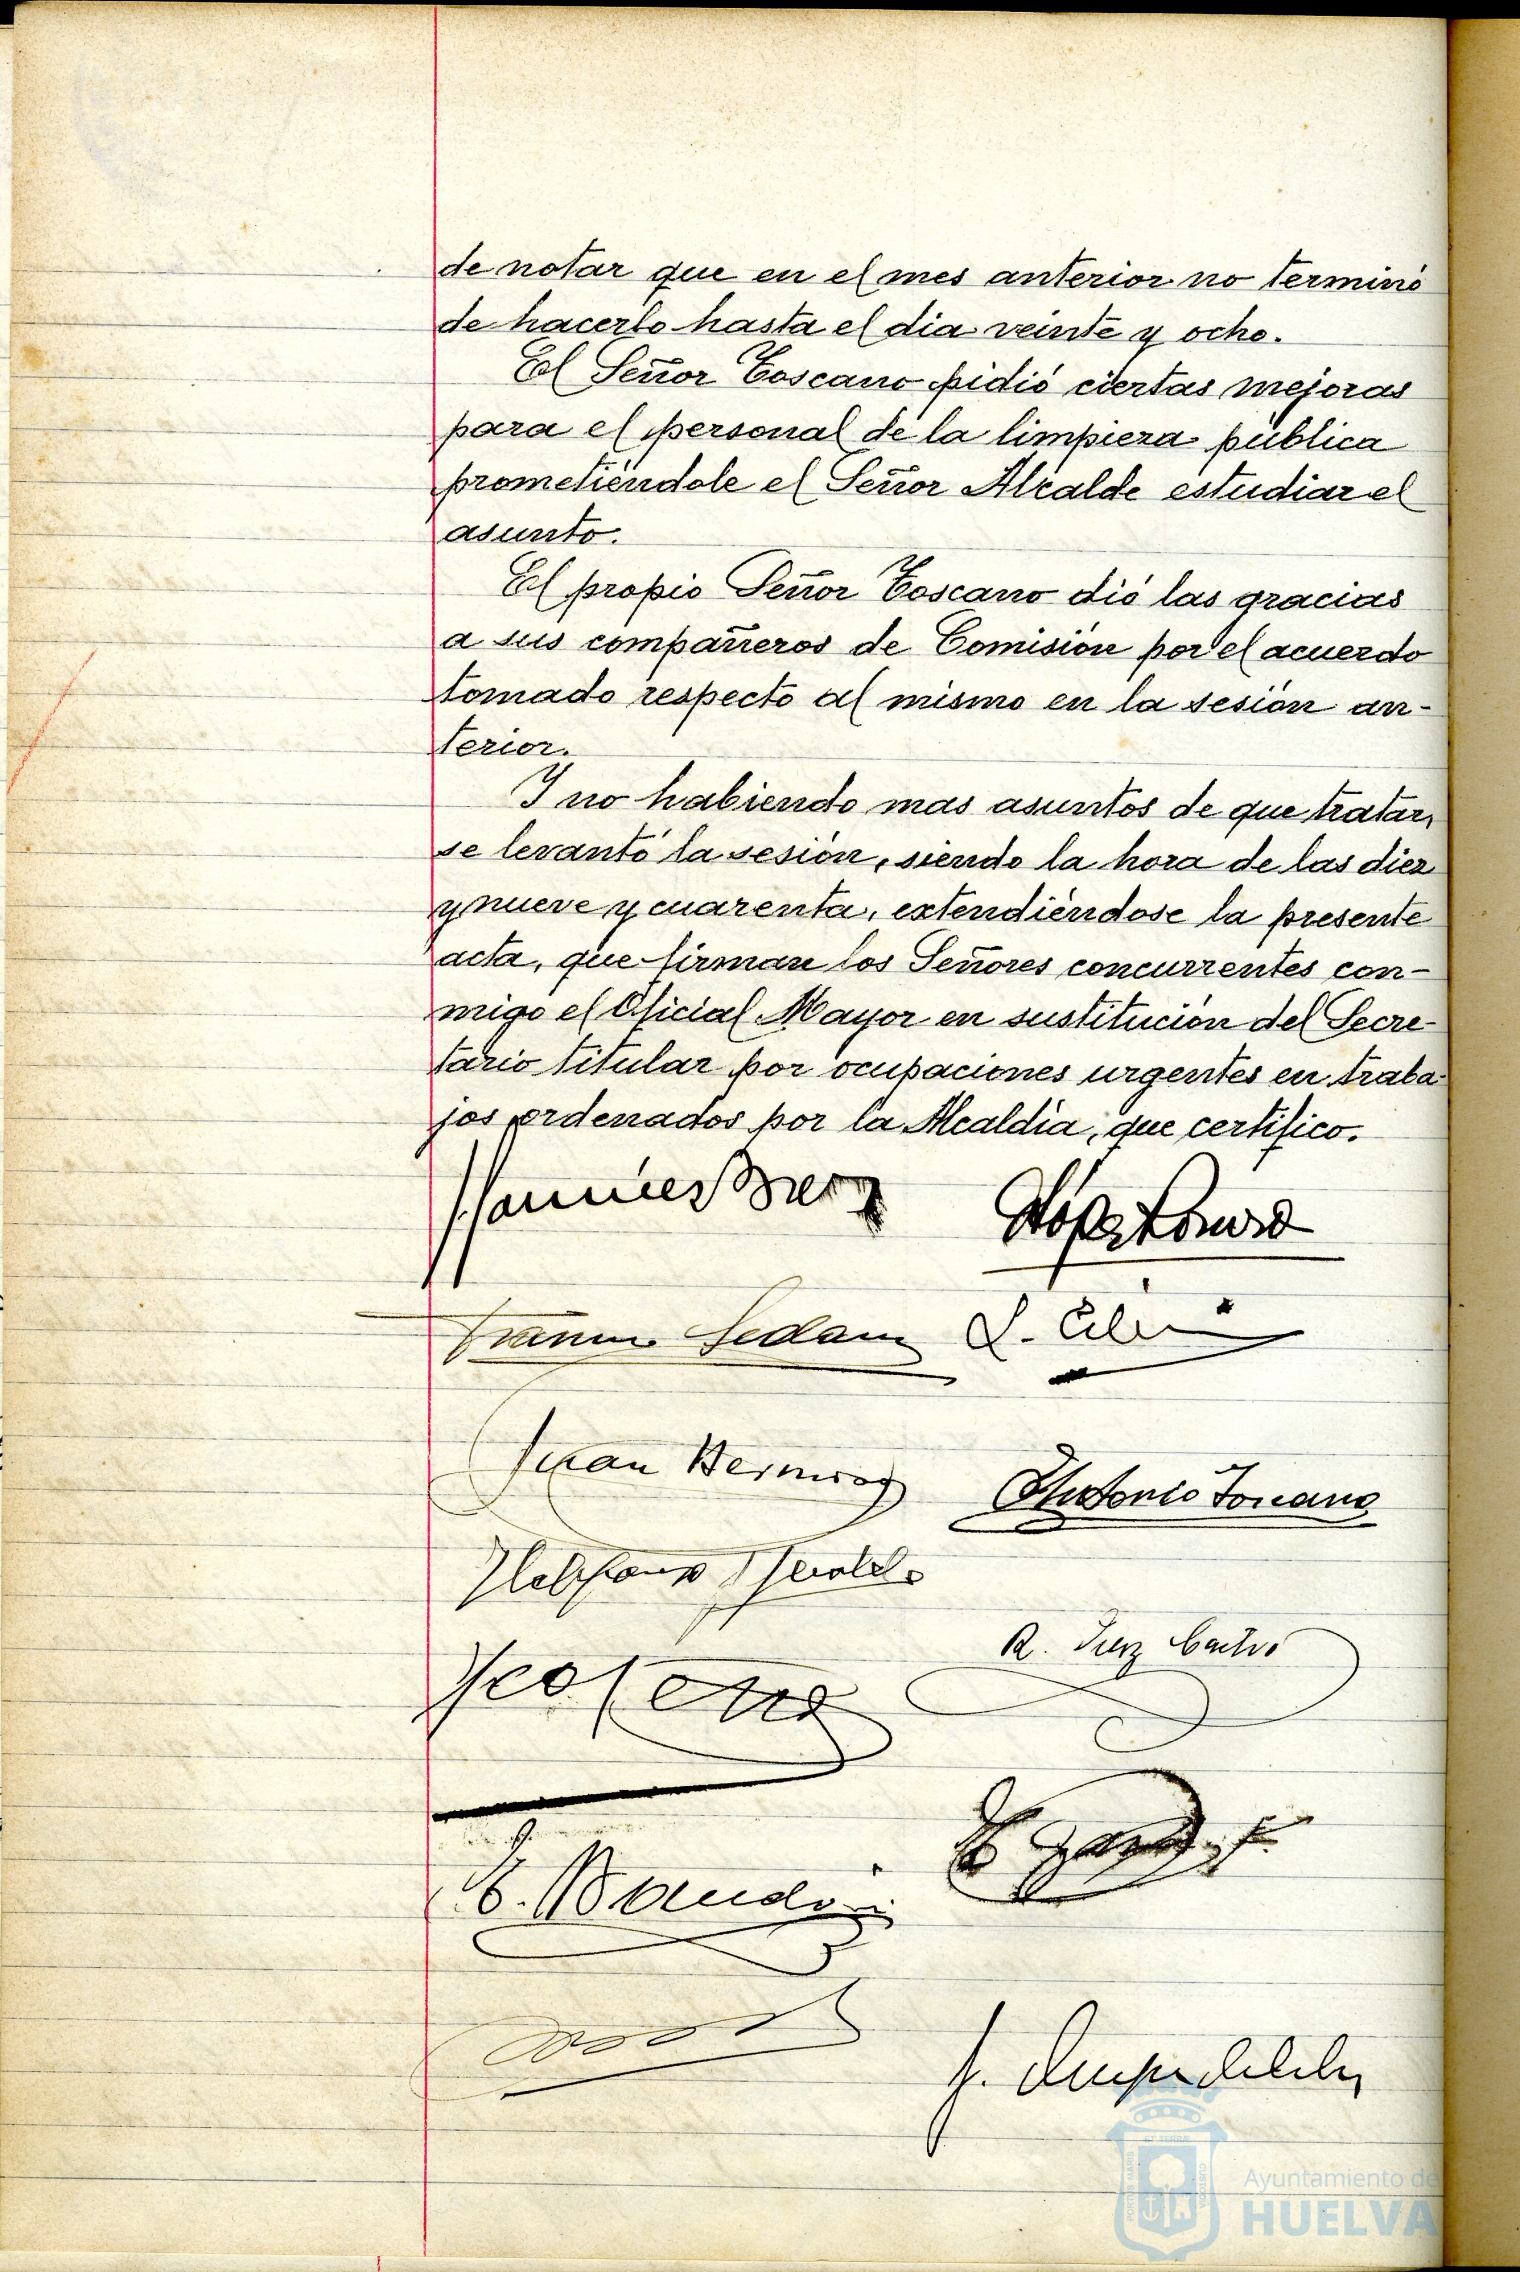 de notar que en el mes anterior no terminó
de hacerlo hasta el dia veinte y ocho.
El Señor Toscano pidió ciertas mejoras
para el personal de la limpieza pública
prometiéndole el Señor Alcalde estudiar el
asunto.
El propio Señor Toscano dió las gracias
a sus compañeros de Comisión por el acuerdo
tomado respecto al mismo en la sesión an-
terior.
Y no habiendo mas asuntos de que tratar,
se levantó la sesión, siendo la hora de las diez
y nueve y cuarenta, extendiéndose la presente
acta, que firman los Señores concurrentes con-
migo el Oficial Mayor en sustitución del Secre-
tario titular por ocupaciones urgentes en traba-
jos ordenados por la Alcaldía, que certifico.
Juan
Antonio Toscano
R. Castro
Ayuntamiento de
HUELVA